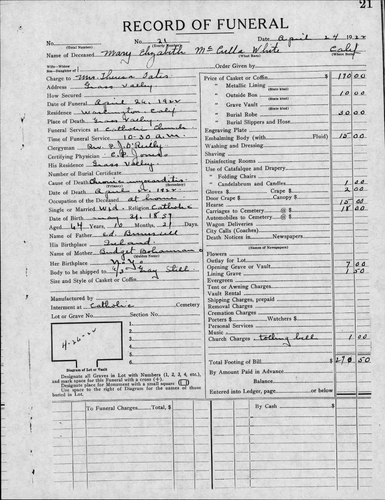 21
RECORD OF FUNERAL
No. No. 21 Date April 24 1922
(Total Number) (Yearly Number)
Name of Deceased Mary Elizabeth White Calif
(What Race) (Where Born)
Charge to Mrs. Order Given by
Address Grass Valley
How Secured
Date of Funeral April 26, 1922
Residence Washington, Calif
Place of Death Grass Valley
Funeral Services at Catholic Church
Time of Service 10:30 a.m.
Clergyman Rev. P. J. O'Reilly
Certifying Physician C. P. Jones
His Residence Grass Valley
Number of Burial Certificate
Cause of Death Chronic myocarditis
(Primary) (Secondary)
Date of Death April 24 1922
Occupation of the Deceased at home
Single or Married Wid. Religion Catholic
Date of Birth May 1857
Aged 64 Years 10 Months 21 Days
Name of Father Ed.
His Birthplace Ireland
Name of Mother Bridget
Her Birthplace N.Y.
Body to be shipped to
Size and Style of Casket or Coffin
Manufactured by
Interment at Catholic Cemetery
Lot or Grave No. Section No.
4-26-22
Diagram of Lot or Vault
Designate all Graves in Lot with Numbers (1, 2, 3, 4, etc.),
and mark space for this Funeral with a cross (+).
Designate place for Monument with a small square
Use space to the right of Diagram for the names of those
buried in Lot.
Price of Casket or Coffin 170 00
" Metallic Lining
(State kind)
" Outside Box 10 00
" Grave Vault
(State kind)
" Burial Robe 30 00
(State kind)
" Burial Slippers and Hose
Engraving Plate
Embalming Body (with Fluid) 15 00
Washing and Dressing
Shaving
Disinfecting Rooms
Use of Catafalque and Drapery
" Folding Chairs
" Candelabrum and Candles 1 00
Gloves $ Crape $ 2 00
Door Crape Canopy
Hearse 15 00
Carriages to Cemetery 18 00
Automobiles to Cemetery
Wagon Deliveries
City Calls (Coaches)
Death Notices in Newspapers
(Names of Newspapers)
Flowers
Outlay for Lot
Opening Grave or Vault 7 00
Lining Grave 1 50
Evergreen
Tent or Awning Charges
Vault Rental
Shipping Charges, prepaid
Removal Charges
Cremation Charges
Porters $ Watchers $
Personal Services
Music
Church Charges tolling bell 1 00
Total Footing of Bill 270 50
By Amount Paid in Advance
Balance
Entered into Ledger, page or below
To Funeral Charges, Total $ By Cash $